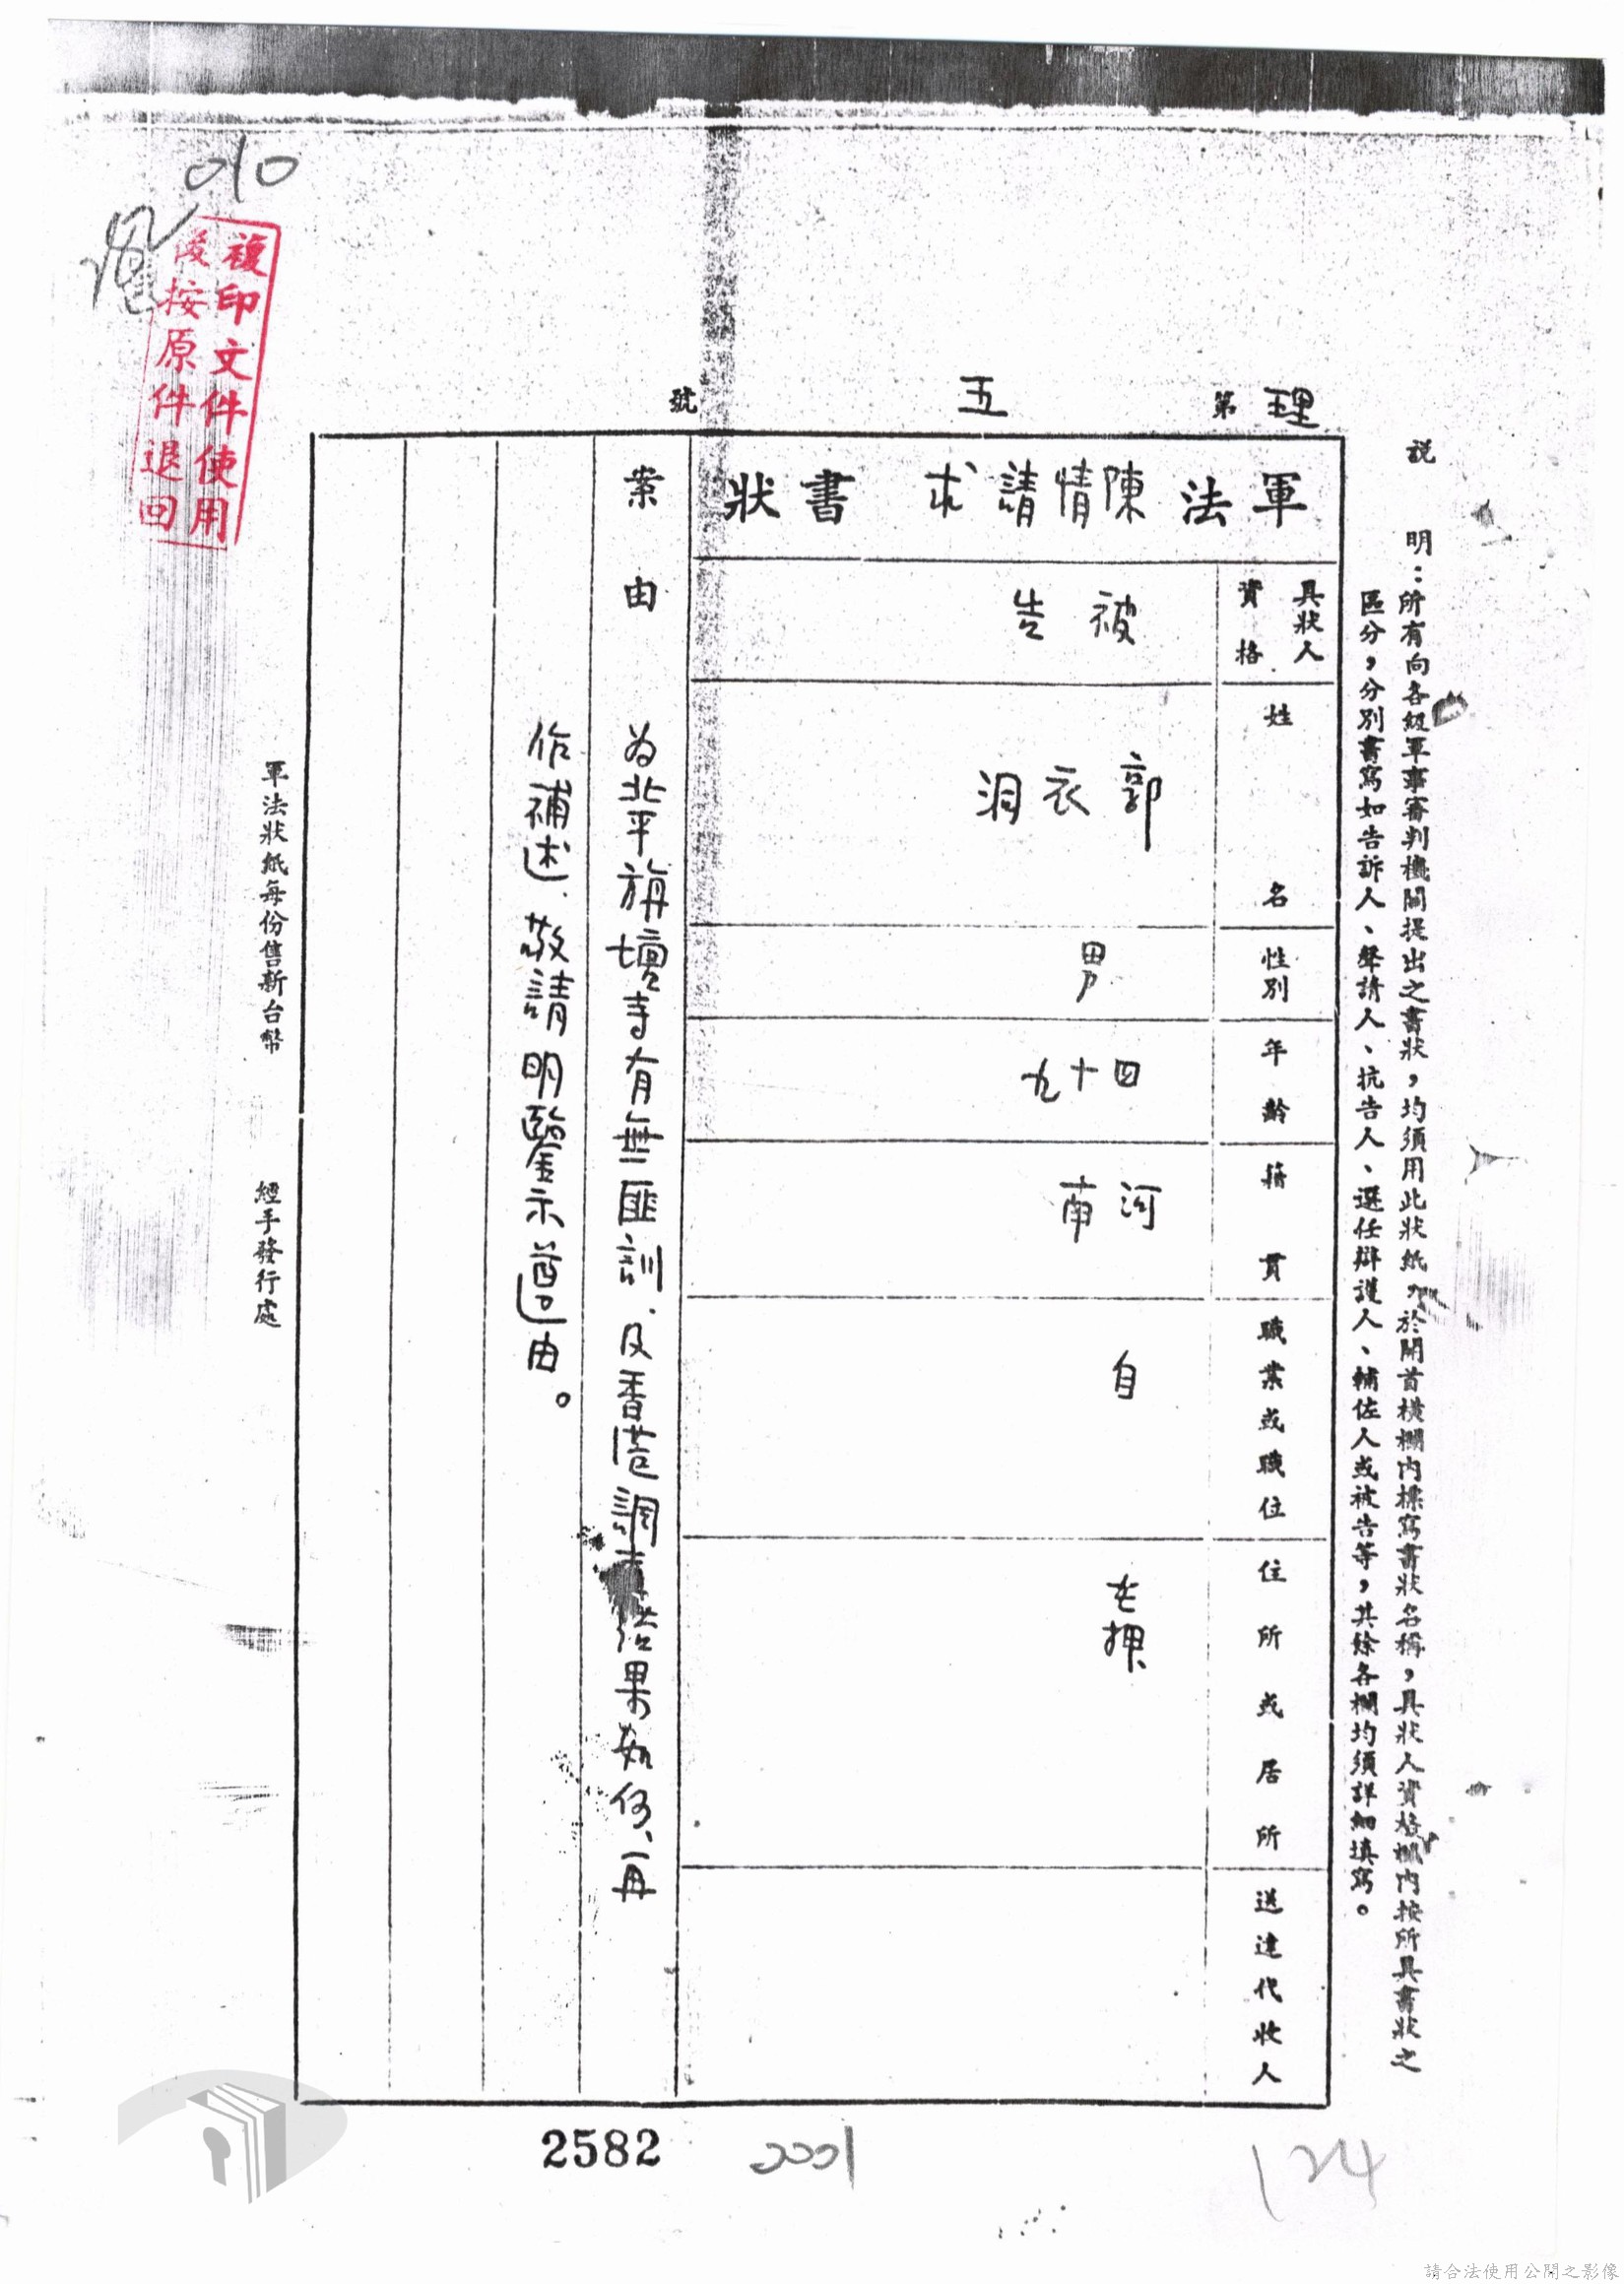 010
複印文件使用
後按原件退回
理第五號
說明：所有向各級軍事審判機關提出之書狀，均須用此狀紙，於開首橫欄內標寫書狀名稱，具狀人資格欄內按所具書狀之
區分，分別書寫如告訴人、聲請人、抗告人、選任辯護人、輔佐人或被告等，其餘各欄均須詳細填寫。
軍法陳情請求書狀
具狀人
資格
被告
姓名
郭衣洞
性別
男
年齡
四十九
籍貫
河南
職業或職位
自
住所或居所
在押
送達代收人
案由
為北平旃壇寺有無匪訓、及香港調查結果如何、再
作補述、敬請明鑒示遵由。
軍法狀紙每份售新台幣
經手發行處
2582
2001
124
請合法使用公開之影像